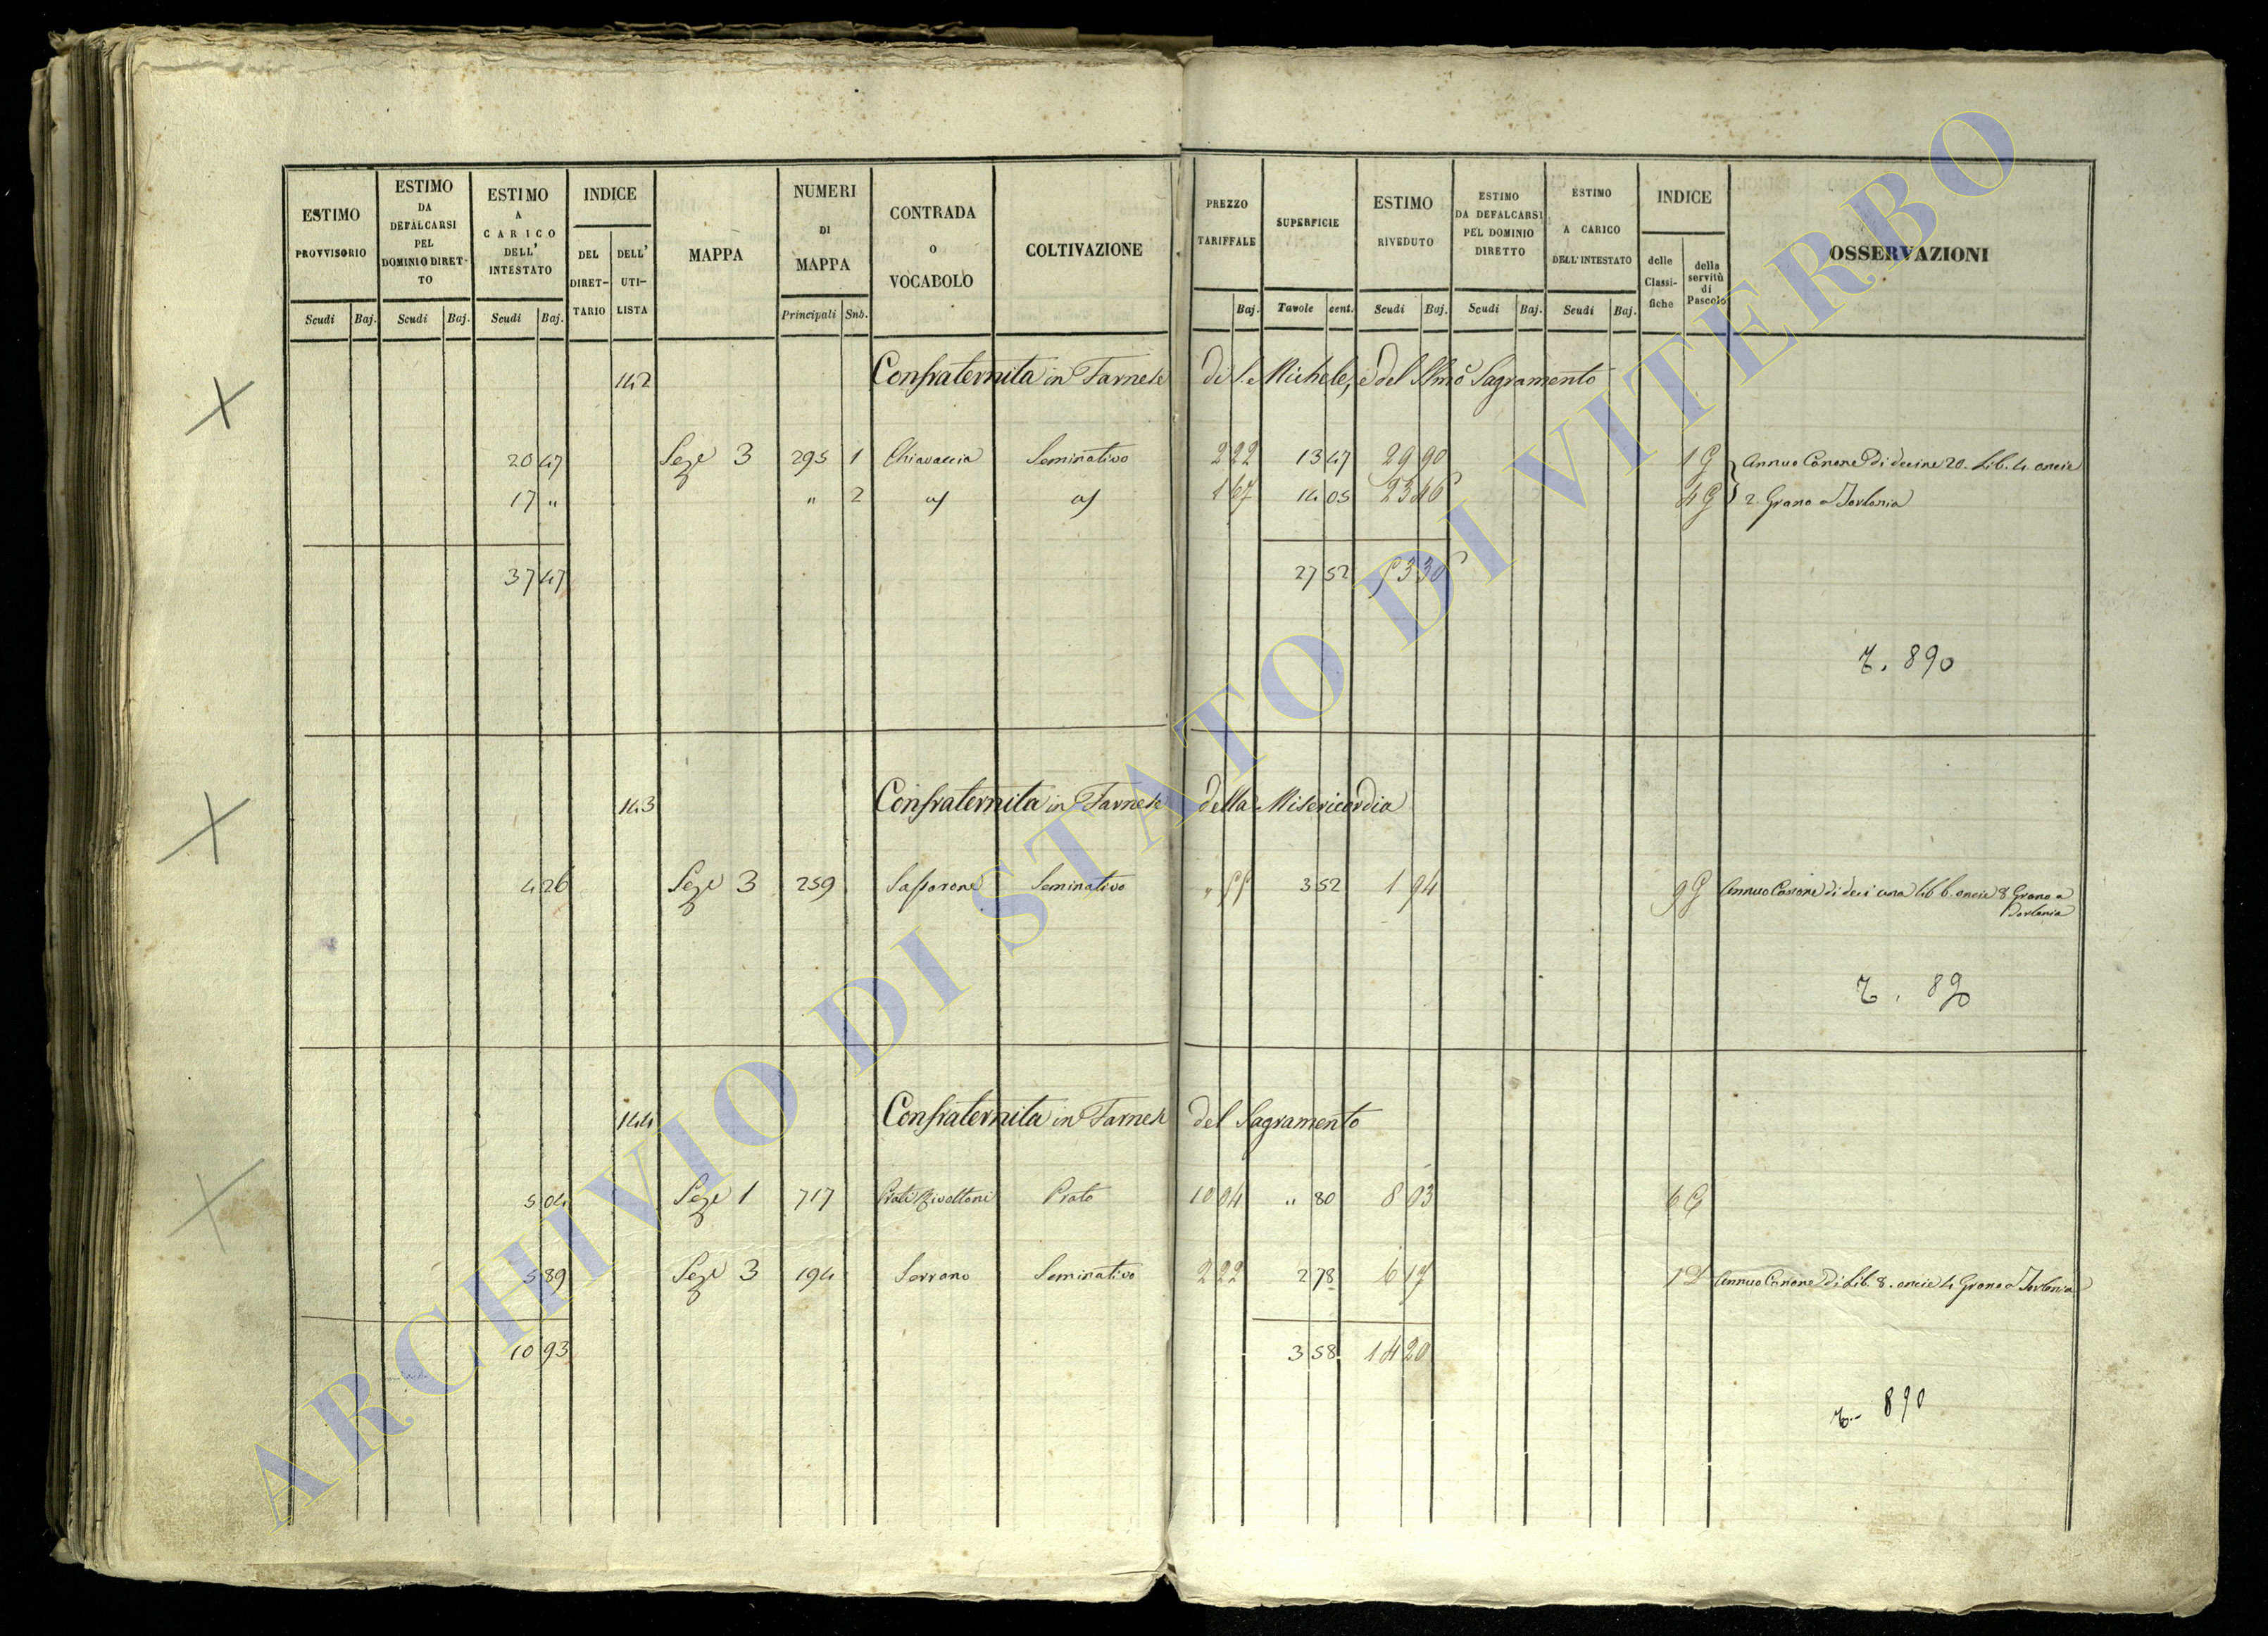 ESTIMO PROVVISORIO Scudi Baj.
ESTIMO DA DEFALCARSI PEL DOMINIO DIRET-TO Scudi Baj.
ESTIMO A CARICO DELL' INTESTATO Scudi Baj.
INDICE DEL DIRET-TARIO DELL' UTI-LISTA
MAPPA
NUMERI DI MAPPA Principali Sub.
CONTRADA O VOCABOLO
COLTIVAZIONE
PREZZO TARIFFALE Baj.
SUPERFICIE Tavole cent.
ESTIMO RIVEDUTO Scudi Baj.
ESTIMO DA DEFALCARSI PEL DOMINIO DIRETTO Scudi Baj.
ESTIMO A CARICO DELL'INTESTATO Scudi Baj.
INDICE delle Classi-fiche della servitù di Pascolo
OSSERVAZIONI
142 Confraternita in Farnese di S. Michele, e del SSmo Sagramento
20 47 Seze 3 295 1 Chiavaccia Seminativo 2 22 13 47 29 90 1 G Annuo Canone di decine 20. Lib. 4. oncie
17 " " 2 1 67 14 05 23 46 4 G 2. Grano a Torlonia
37 47 27 52 53 36
890
143 Confraternita in Farnese della Misericordia
4 26 Seze 3 259 Sassarone Seminativo " 55 3 52 1 94 9 G Annuo Canone di deci una lib 6. oncie 8. Grano a
Torlonia
890
144 Confraternita in Farnese del Sagramento
5 04 Seze 1 717 Prati Rivoltoni Prato 10 04 " 80 8 03 6 G
5 89 Seze 3 194 Serrano Seminativo 2 22 2 78 6 17 1 D Annuo Canone di Lib. 8. oncie 4 Grano a Torlonia
10 93 3 58 14 20
890
ARCHIVIO DI STATO DI VITERBO